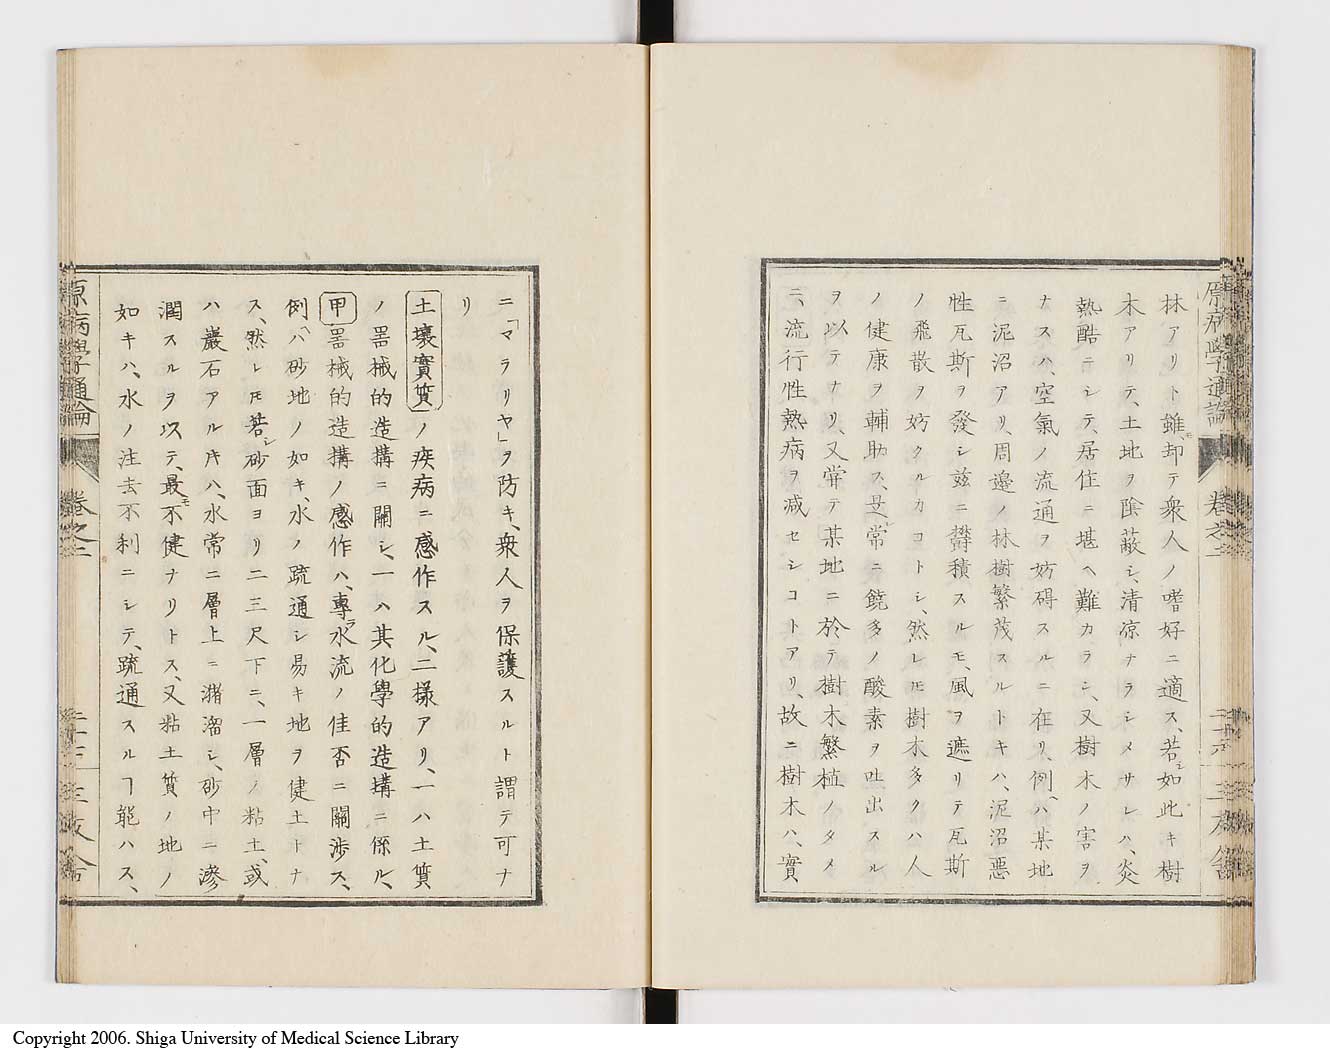 林アリト雖モ、却テ衆人ノ嗜好ニ適ス、若シ如此キ樹
木アリテ、土地ヲ陰蔽シ、清凉ナラシメサレハ、炎
熱酷ニシテ、居住ニ堪ヘ難カラシ、又樹木ノ害ヲ
ナスハ、空氣ノ流通ヲ妨碍スルニ在リ、例ヘハ某地
ニ泥沼アリ、周邊ノ林樹繁茂スルトキハ、泥沼悪
性瓦斯ヲ發シ玆ニ欝積スルモ、風ヲ遮リテ瓦斯
ノ飛散ヲ妨クルカコトシ、然レ𪜈樹木多クハ人
ノ健康ヲ輔助ス、是常ニ饒多ノ酸素ヲ吐出スル
ヲ以テナリ、又甞テ某地ニ於テ樹木繁植ノタメ
ニ、流行性熱病ヲ减セシコトアリ、故ニ樹木ハ、實
原病學通論 卷之二 二十六 三友舍
ニ「マラリヤ」ヲ防キ、衆人ヲ保護スルト謂テ可ナ
リ
土壤實質ノ疾病ニ感作スル、二樣アリ、一ハ土質
ノ噐械的造搆ニ關シ、一ハ其化學的造搆ニ係ル、
甲噐械的造搆ノ感作ハ、專ラ水流ノ佳否ニ關渉ス、
例ヘハ砂地ノ如キ、水ノ疏通シ易キ地ヲ健土トナ
ス、然レ𪜈若シ砂面ヨリ二三尺下ニ、一層ノ粘土、或
ハ巖石アルキハ、水常ニ層上ニ瀦溜シ、砂中ニ滲
潤スルヲ以ステ、最モ不健ナリトス、又粘土質ノ地ノ
如キハ、水ノ注去不利ニシテ、疏通スルヿ能ハス、
原病學通論 卷之二 三友舍
Copyright 2006. Shiga University of Medical Science Library